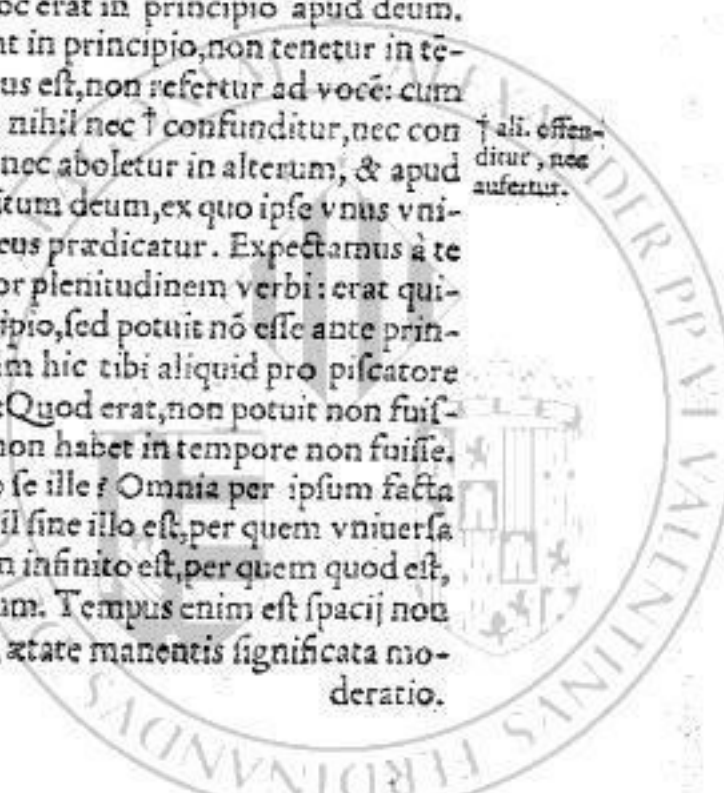 oc erat in principio apud deum.
nt in principio,non tenetur in tē-
us eſt,non refertur ad vocē: cum
nihil nec † confunditur,nec con
nec aboletur in alterum, & apud
† ali. offen-
ditur, nec
aufertur.
itum deum,ex quo ipſe vnus vni-
eus prædicatur. Expectamus à te
or plenitudinem verbi: erat qui-
ipio,ſed potuit nō eſſe ante prin-
m hic tibi aliquid pro piſcatore
Quod erat,non potuit non fuiſ-
non habet in tempore non fuiſſe.
ſe ille? Omnia per ipſum facta
il ſine illo eſt,per quem vniuerſa
n infinito eſt,per quem quod eſt,
um. Tempus enim eſt ſpacij non
ætate manentis ſignificata mo-
deratio.
ALEXANDER PP VI VALENTINVS FERDINANDVS